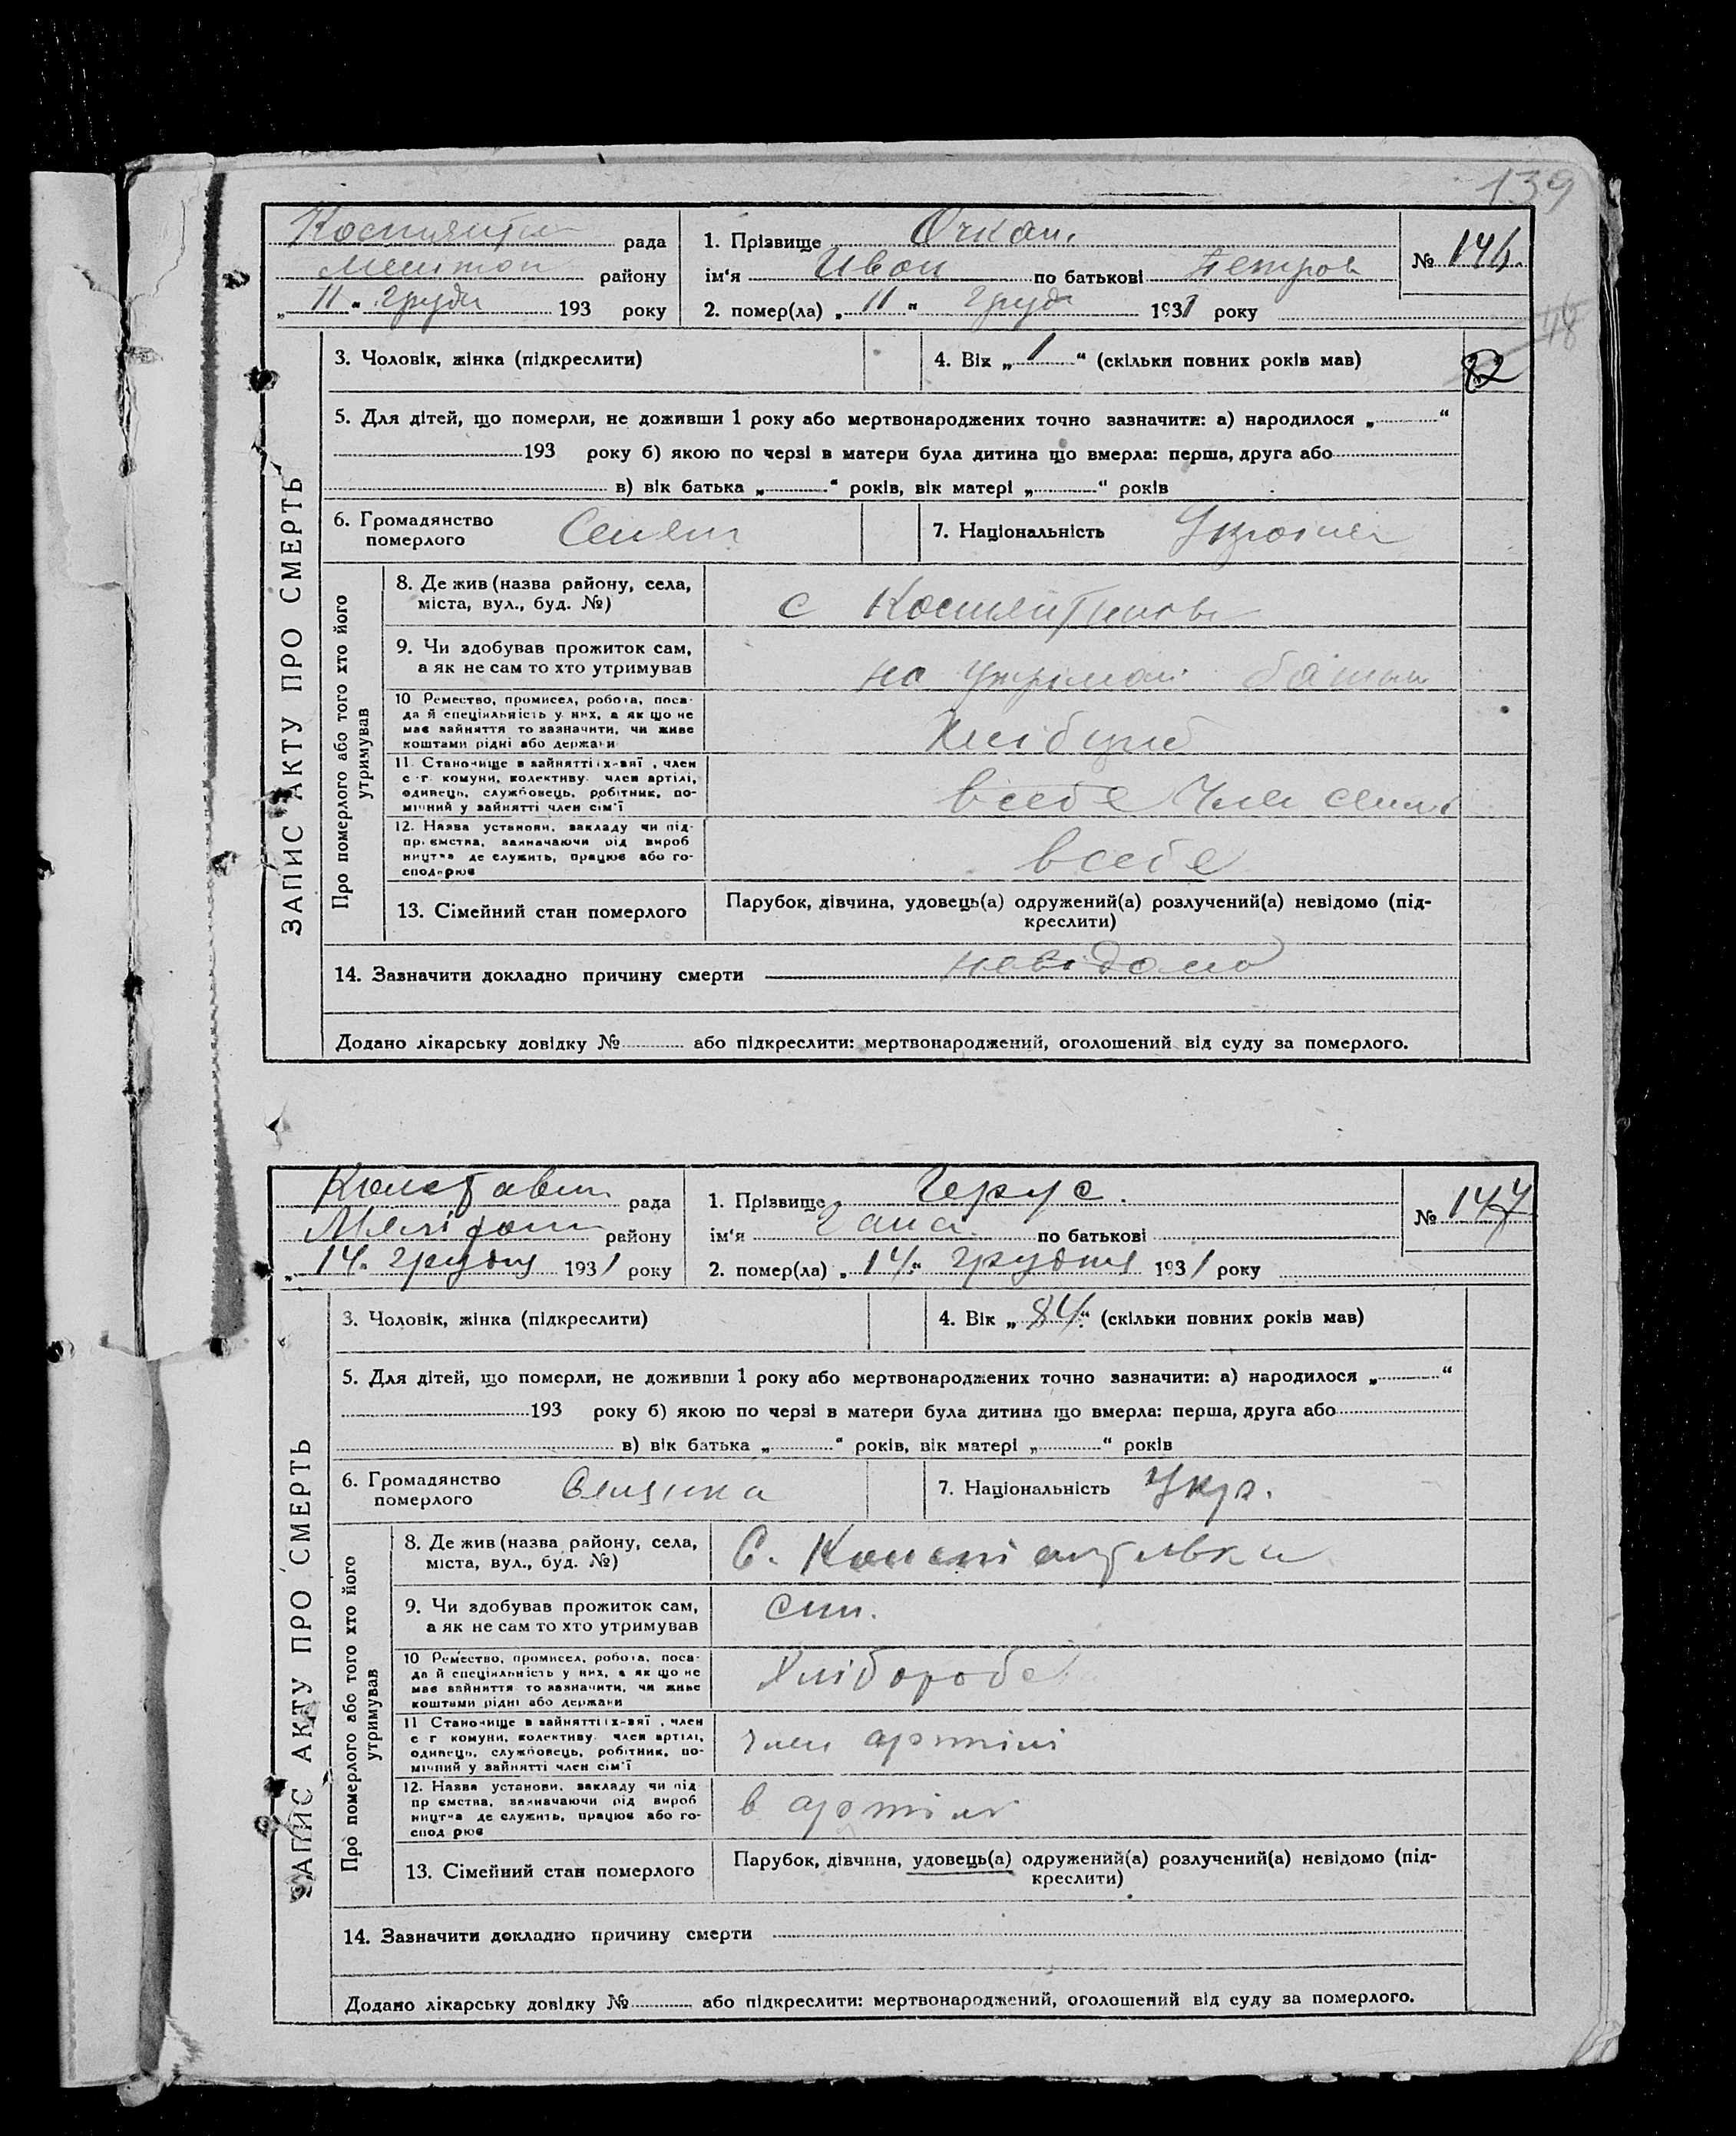 139
Костянтин рада
Мелітоп району
„ 11 “ груды 193 року
1. Прізвище Очкан.
ім‘я Иван по батькові Петров
2. помер(ла) „ 11 “ груд 1931 року
№ 146.
ЗАПИС АКТУ ПРО СМЕРТЬ
3. Чоловік, жінка (підкреслити)
4. Вік „ 1 “ (скільки повних років мав)
5. Для дітей, що померли, не доживши 1 року або мертвонароджених точно зазначити: а) народилося „ “
193 року б) якою по черзі в матери була дитина що вмерла: перша, друга або
в) вік батька „ “ років, вік матері „ “ років
6. Громадянство
померлого
7. Національність
Про померлого або того хто його
утримував
8. Де жив (назва району, села,
міста, вул., буд. №)
с Костянтиновк
9. Чи здобував прожиток сам,
а як не сам то хто утримував
на утріман батьки
10 Ремество, промисел, робота, поса-
да й спеціяльність у них, а як що не
має зайняття то зазначити, чи живе
коштами рідні або держави
11. Становище в зайнятті їх-вяї , член
с г. комуни, колективу член артілі,
одинець, службовець, робітник, по-
мічний у зайнятті член сім‘ї
в себе Член семьи
12. Назва установи, закладу чи під-
приємства, зазначаючи рід вироб
ництва де служить, працює або го-
сподарює
в себе
13. Сімейний стан померлого
Парубок, дівчина, удовець(а) одружений(а) розлучений(а) невідомо (під-
креслити)
14. Зазначити докладно причину смерти невідомо
Додано лікарську довідку № або підкреслити: мертвонароджений, оголошений від суду за померлого.
рада
району
„ 14 “ грудня 1931 року
1. Прізвище Герус.
ім‘я Гана по батькові
2. помер(ла) „ 14 “ грудня 1931 року
№ 147
ЗАПИС АКТУ ПРО СМЕРТЬ
3. Чоловік, жінка (підкреслити)
4. Вік „ 84 “ (скільки повних років мав)
5. Для дітей, що померли, не доживши 1 року або мертвонароджених точно зазначити: а) народилося „ “
193 року б) якою по черзі в матери була дитина що вмерла: перша, друга або
в) вік батька „ “ років, вік матері „ “ років
6. Громадянство
померлого
7. Національність Укр.
Про померлого або того хто його
утримував
8. Де жив (назва району, села,
міста, вул., буд. №)
С. Констянтинвка
9. Чи здобував прожиток сам,
а як не сам то хто утримував
син.
10 Ремество, промисел, робота, поса-
да й спеціяльність у них, а як що не
має зайняття то зазначити, чи живе
коштами рідні або держави
Хлібороб
11 Становище в зайнятті їх-вяї , член
с г комуни, колективу член артілі,
одинець, службовець, робітник, по-
мічний у зайнятті член сім‘ї
член артілі
12. Назва установи, закладу чи під
приємства, зазначаючи рід вироб
ництва де служить, працює або го-
сподарює
в артілі
13. Сімейний стан померлого
Парубок, дівчина, удовець(а) одружений(а) розлучений(а) невідомо (під-
креслити)
14. Зазначити докладно причину смерти
Додано лікарську довідку № або підкреслити: мертвонароджений, оголошений від суду за померлого.